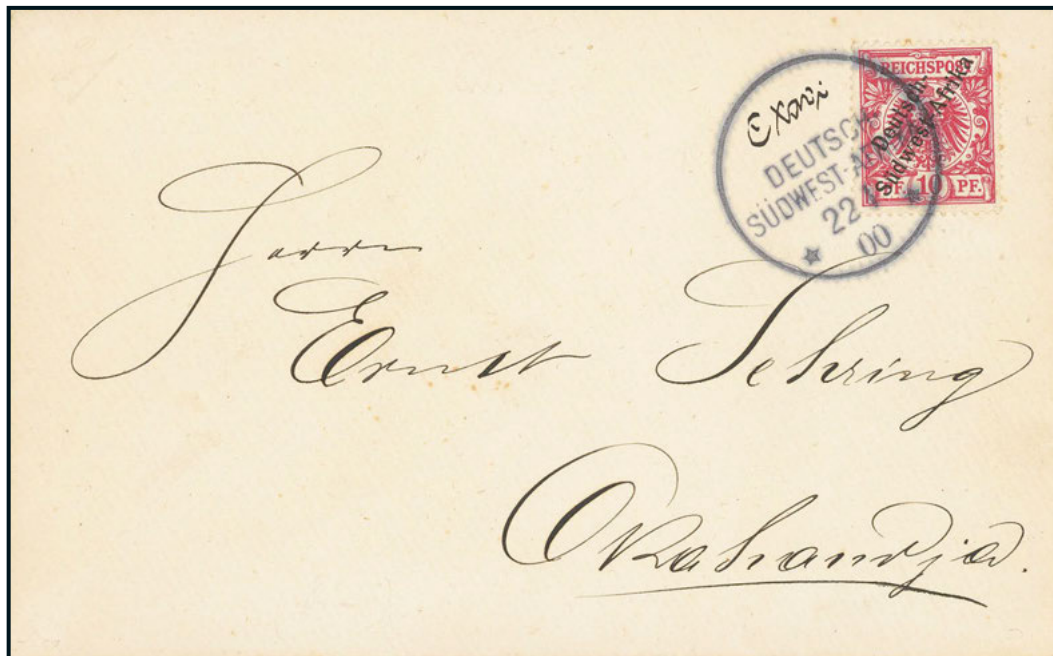 REICHSPOST
Deutsch-
Südwest-Afrika
PF. 10 PF.
DEUTSCH
SÜDWEST-AF
22
00
Herrn
Ernst Sehring
Okahandja.